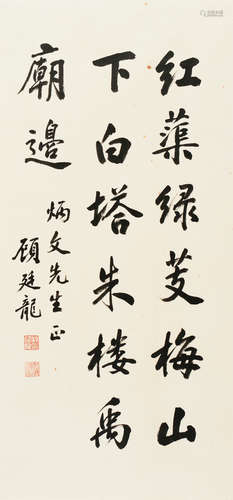 红蕖绿芰梅山
下白塔朱楼禹
廟邊
炳文先生正
顾廷龍